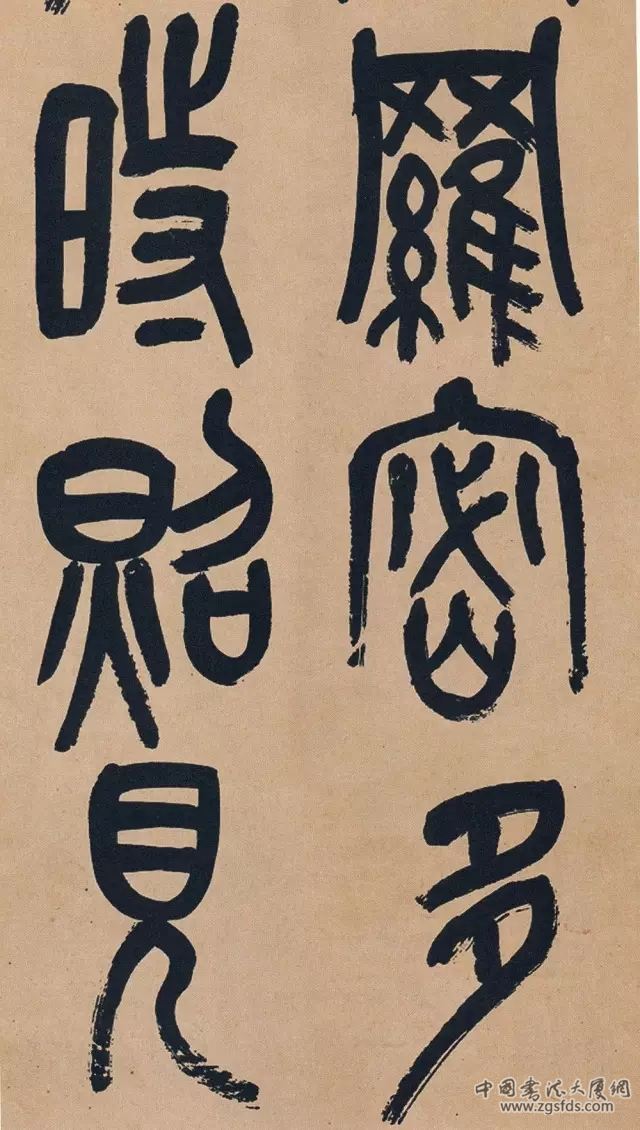 羅密多
時照見
中国书法大厦网
www.zgsfds.com